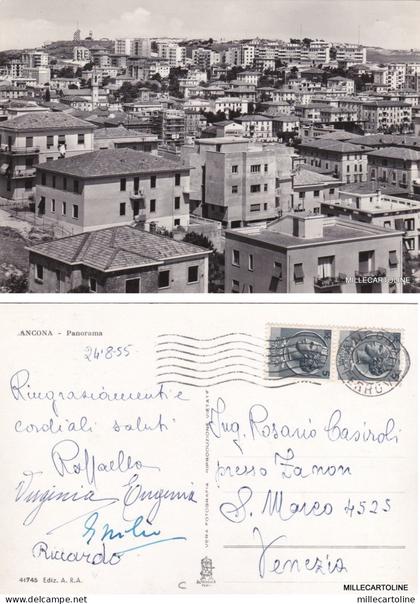 MILLECARTOLINE
ANCONA - Panorama
24·8·55
Ringraziamenti e
cordiali saluti
Raffaella
Virginia Eugenia
Emilio
Riccardo
44745 Ediz. A. R. A.
VERA FOTOGRAFIA - RIPRODUZIONE VIETATA
Ing. Rosario Casiroli
presso Zanon
S. Marco 4525
Venezia
MILLECARTOLINE
www.millecartoline.com
millecartoline